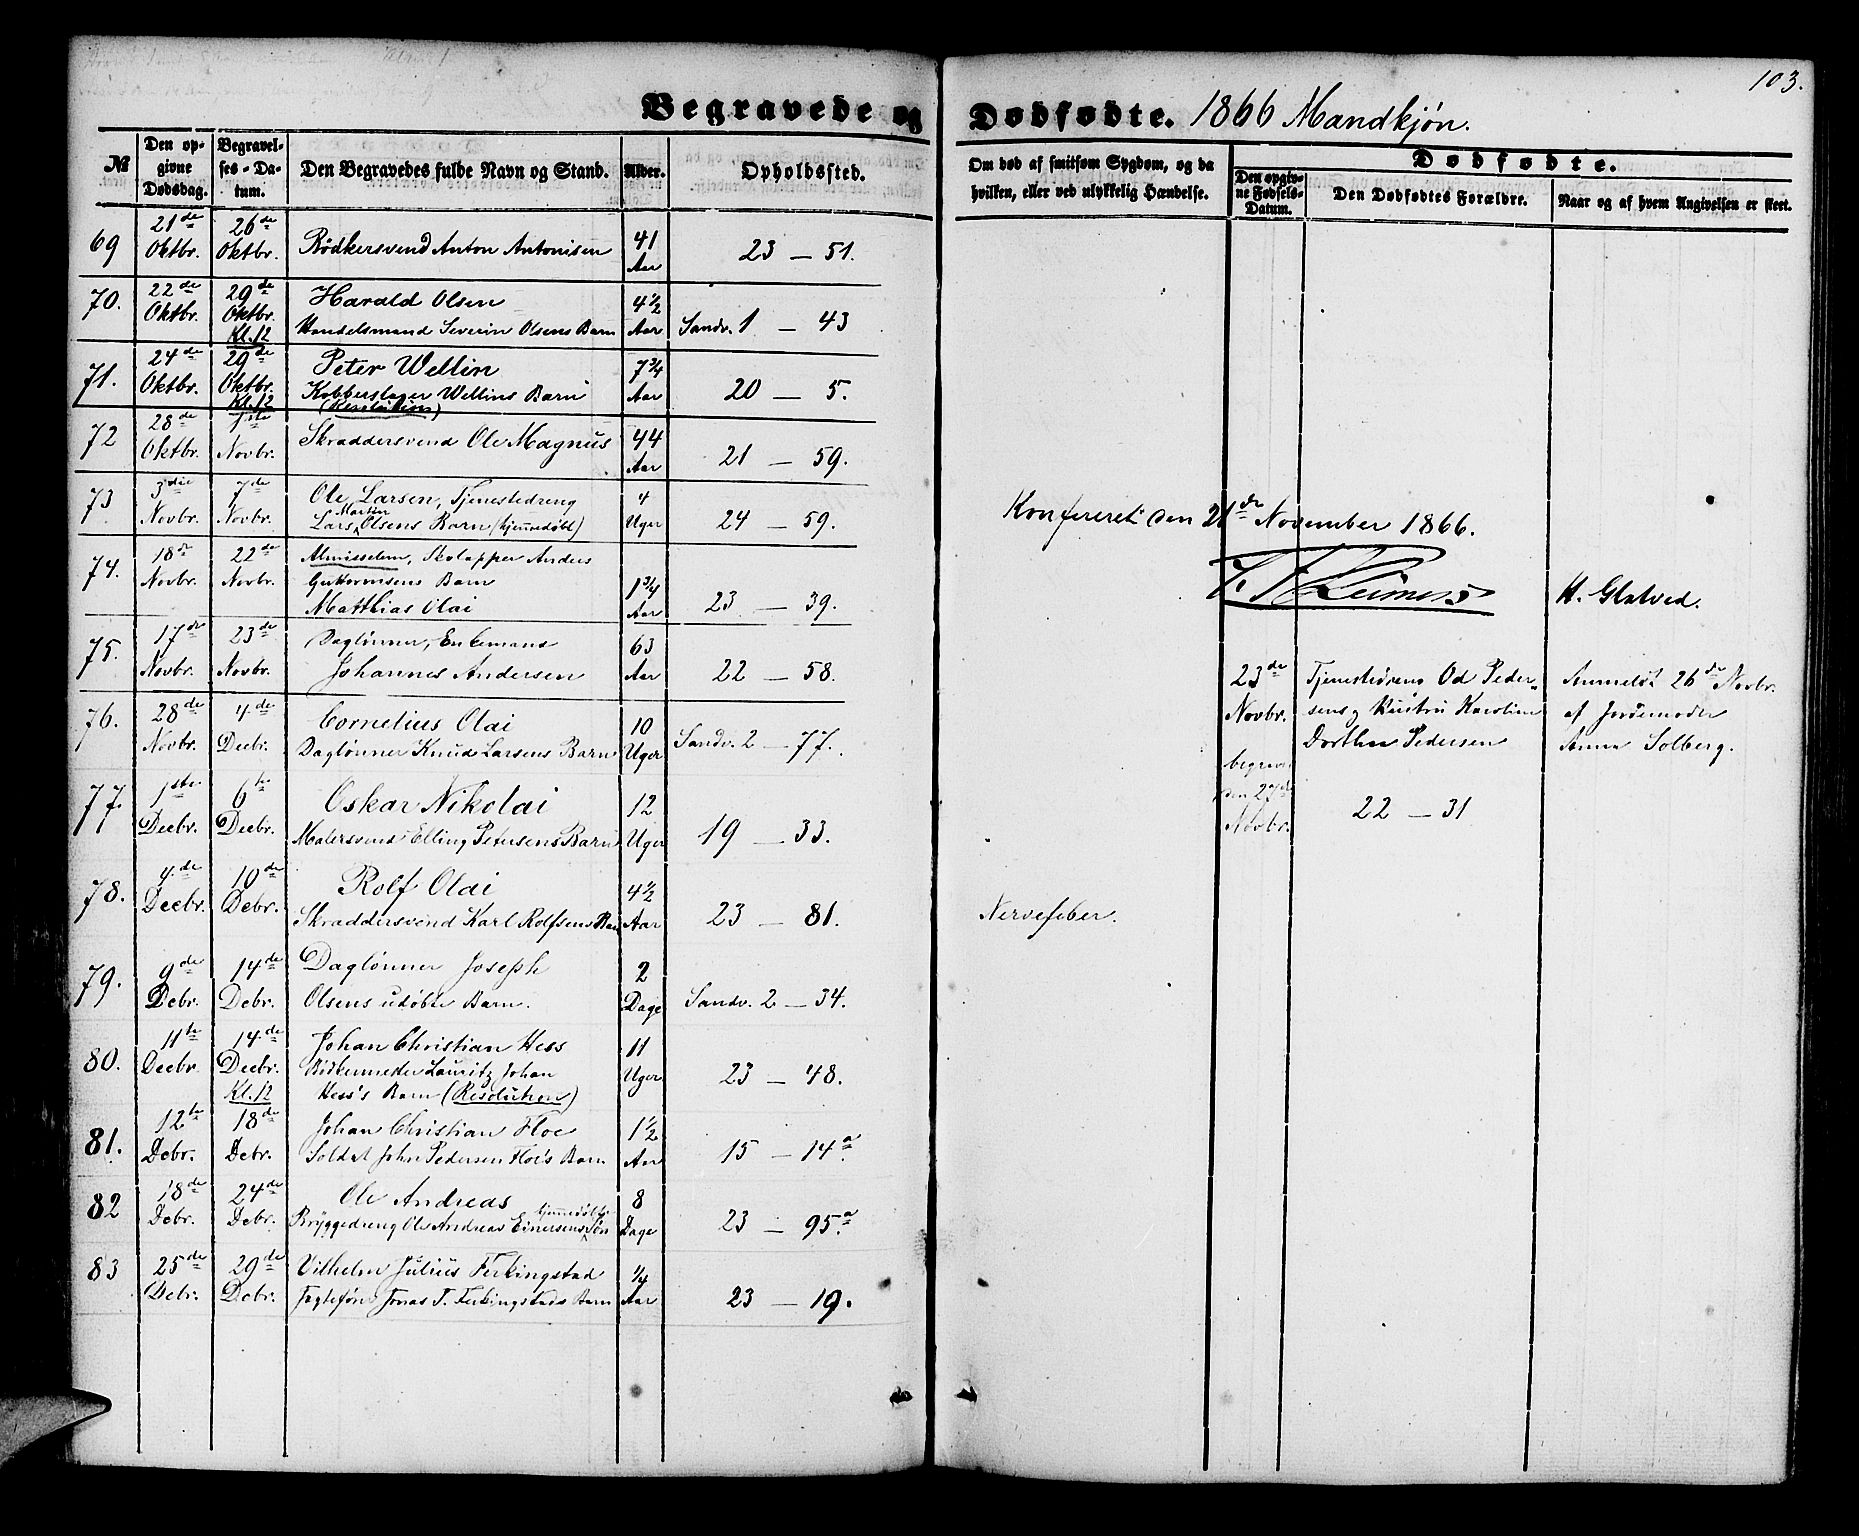 103.
Begravede og Dødfødte. 1866 Mandkjøn.
№
Den opgivne Dødsdag.
Begravelses-Datum.
Den Begravedes fulde Navn og Stand.
Alder.
Opholdssted.
Om død af smitsom Sygdom, og da hvilken, eller ved ulykkelig Hændelse.
Dødfødte.
Den opgivne Fødsels-Datum.
Den Dødfødtes Forældre.
Naar og af hvem Angivelsen er skeet.
69 21de Oktbr. 26de Oktbr. Bødkersvend Anton Antonisen 41 Aar 23 — 51.
70. 22de Oktbr. 29de Oktbr. Kl. 12 Harald Olsen
Handelsmand Severin Olsens Barn 4½ Aar Sandv. 1 — 43
71. 24de Oktbr. 29de Oktbr. Kl. 12 Peter Wellin
Kobberslager Wellins Barn
(Resolution) 7¾ Aar 20 — 5.
72 28de Oktbr. 1ste Novbr. Skraddersvend Ole Magnus 44 Aar 21 — 59.
73 3die Novbr. 7de Novbr. Ole Larsen, Tjenestedreng
Lars Martin Olsens Barn (hjemmedøbt) 4 Uger 24 — 59.
Konfereret den 21de November 1866.
74. 18de Novbr. 22de Novbr. Almisselem, Skolapper Anders
Guttormsens Barn
Matthias Olai 1¾ Aar 23 — 39.
H. Glatved.
75. 17de Novbr. 23de Novbr. Daglønner, Enkemand
Johannes Andersen 63 Aar 22 — 58.
23de Novbr. Tjenestedreng Od Peder-
sens og Hustru Karoline
Dorthea Pedersen
Anmeldt 26de Novbr.
af Jordemoder
Anna Solberg.
begravet den 27de Novbr. 22 — 31
76. 28de Novbr. 4de Decbr. Cornelius Olai
Daglønner Knud Larsens Barn 10 Uger Sandv. 2 — 77.
77. 1ste Decbr. 6te Decbr. Oskar Nikolai
Malersvend Elling Petersens Barn 12 Uger 19 — 33.
78. 4de Decbr. 10de Debr. Rolf Olai
Skraddersvend Karl Rolfsens Barn 4½ Aar 23 — 81. Nervefeber.
79. 9de Debr. 14de Debr. Daglønner Joseph
Olsens udøbte Barn. 2 Dage Sandv. 2 — 34.
80. 11te Decbr. 14de Decbr. Kl. 12 Johan Christian Hess
Bødkermester Lauritz Johan
Hess's Barn (Resolution) 11 Uger 23 — 48.
81. 12te Debr. 18de Debr. Johan Christian Floe
Soldat John Pedersen Floe's Barn 1½ Aar 15 — 14a.
82 18de Debr. 24de Debr. Ole Andreas
Bryggedreng Ole Andreas Einersens hjemmedøbte Søn 8 Dage 23 — 95a.
83 25de Debr. 29de Debr. Vilhelm Julius Ferkingstad
Jagtefører Jonas T. Ferkingstads Barn ¼ Aar 23 — 19.